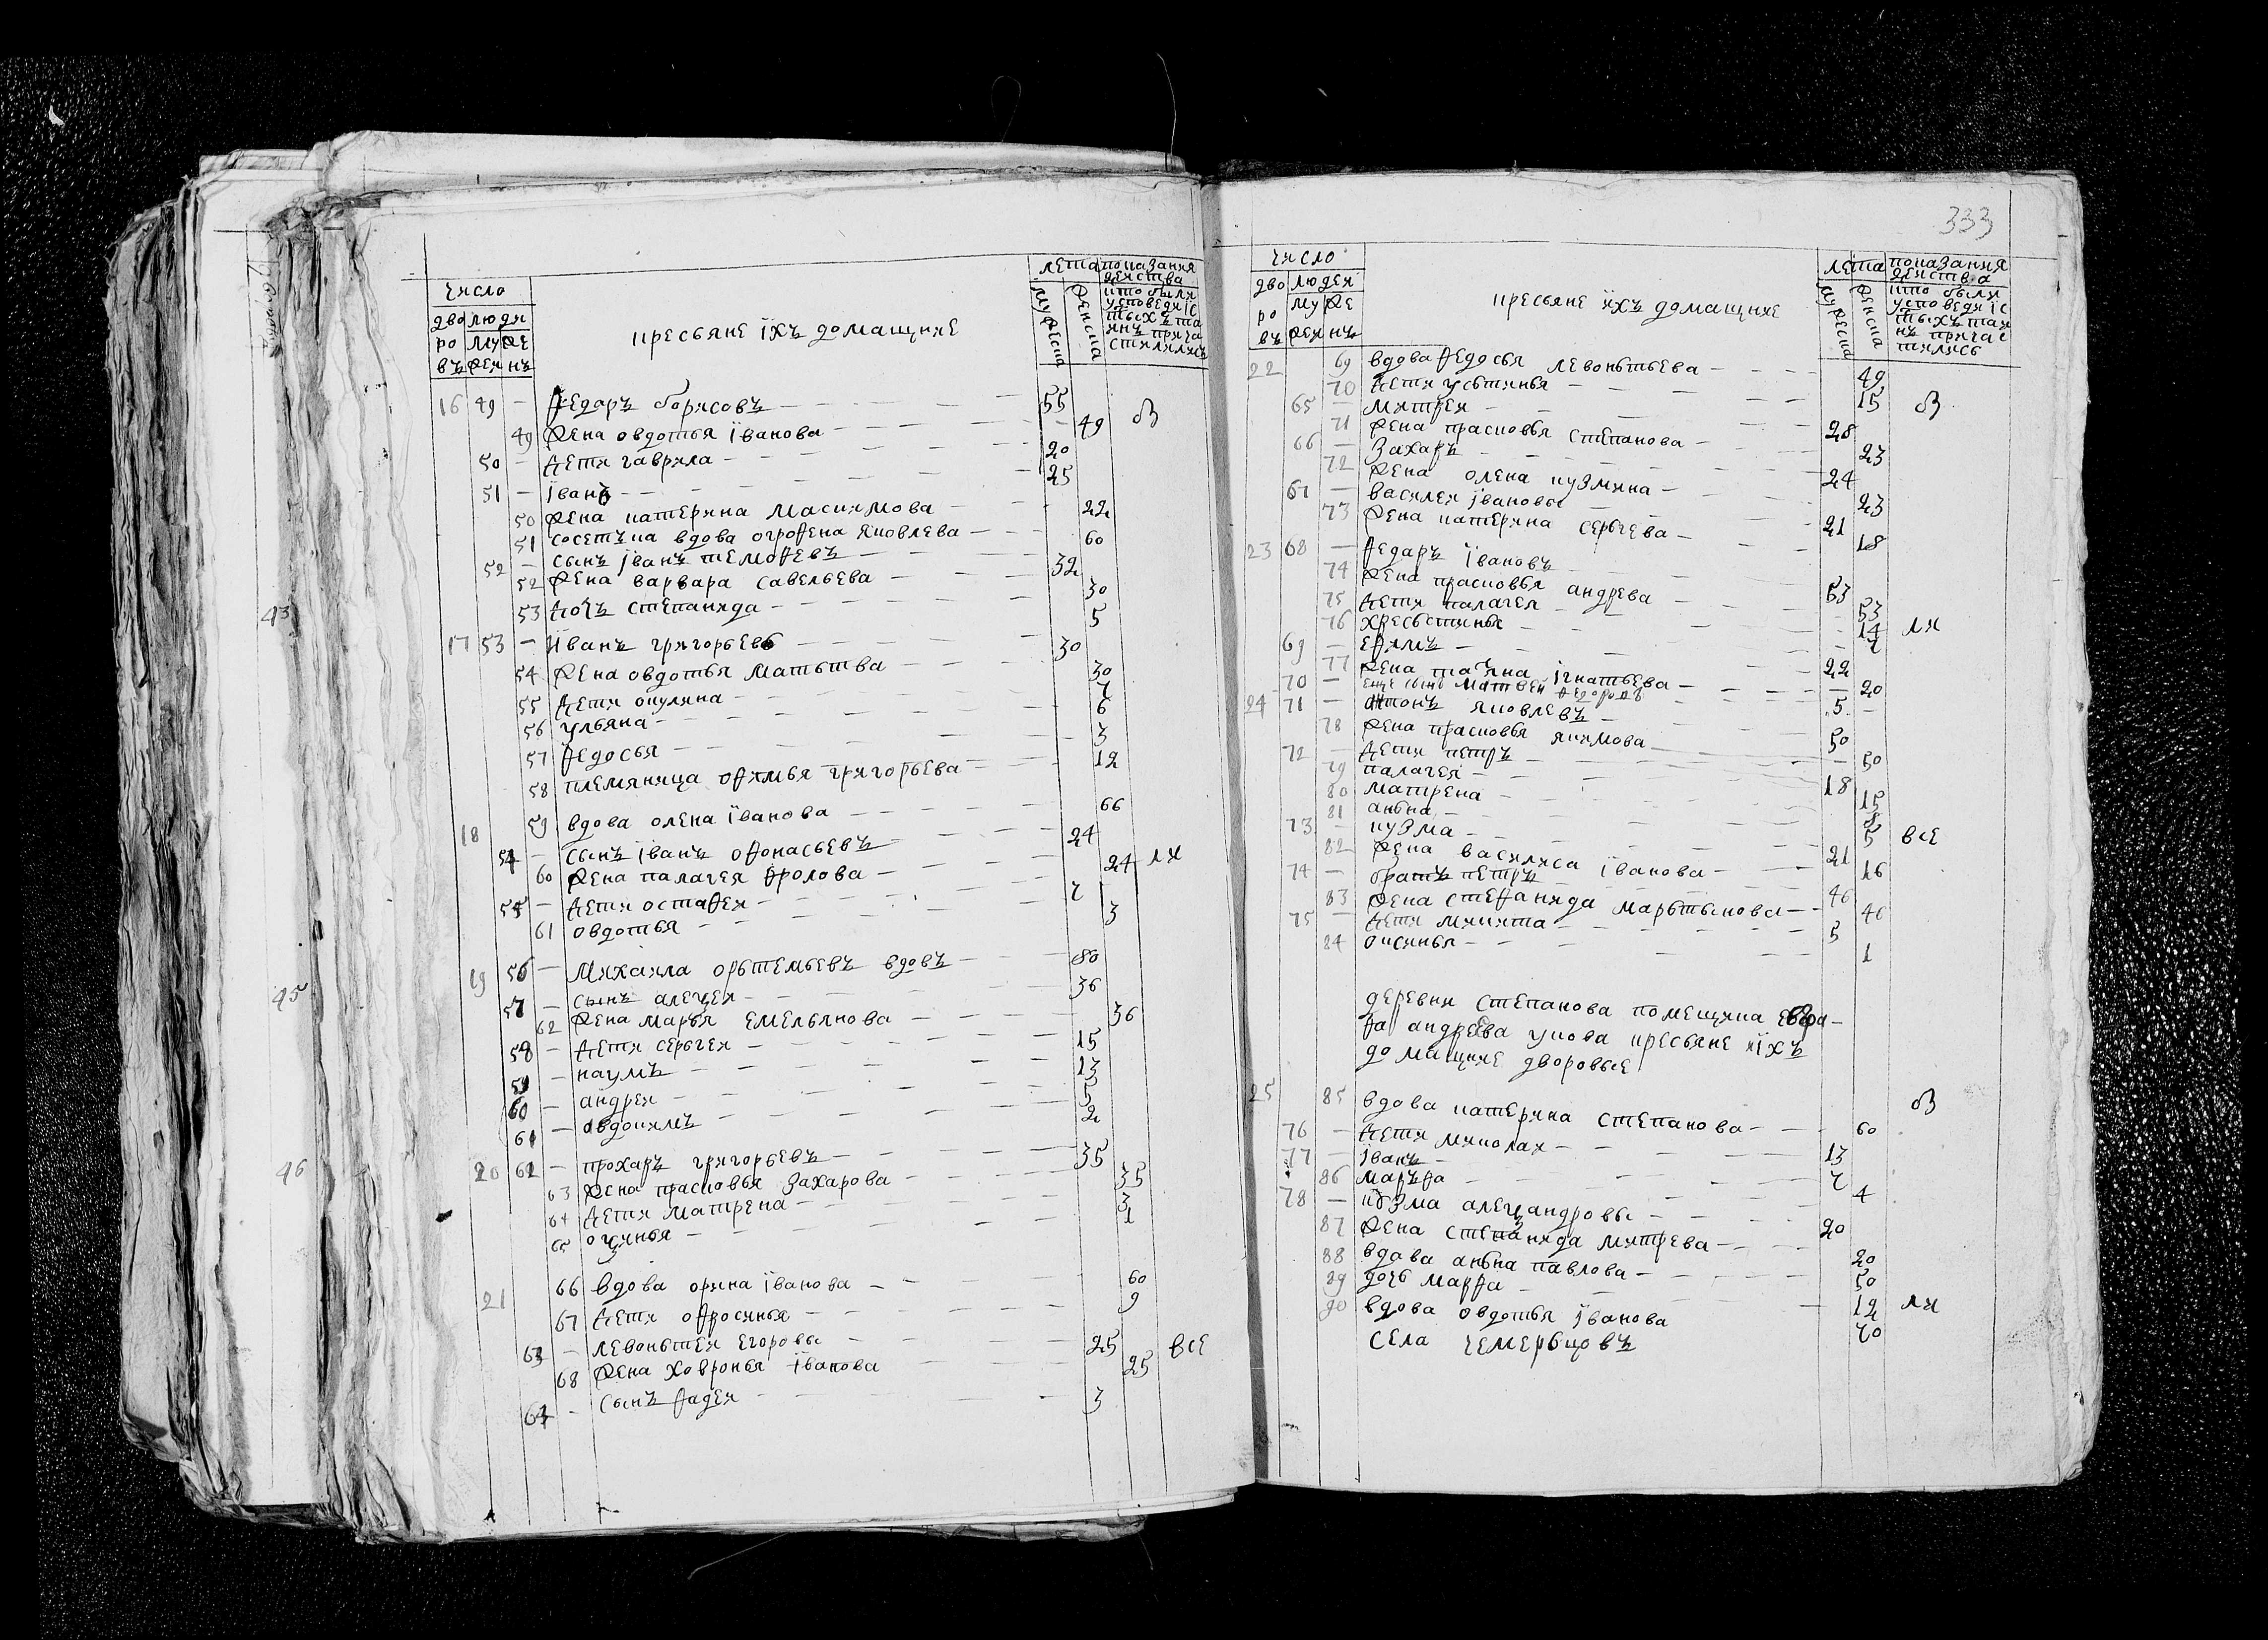 число
дво люди
ро муже
въ жеи нъ
кресьяне їхъ домащние
лета показания
деиства
мужеска
женска
кто были
у споведи і с
тыхъ та
инъ прича
стилились
16 49 — Ѳедаръ борисовъ — 55 оз
49 жена овдотья їванова — 49
50 — дети гаврила — 20
51 — іванъ — 25
50 жена катерина масимова — 22
51 сосетъка вдова огроѳена яковлева — 60
52 — сынъ іванъ темоѳевъ — 32
52 жена варвара савельева — 30
53 дочъ степанида — 5
17 53 — иванъ григорьевъ — 30
54 жена овдотья матьтва — 30
55 дети окулина — 7
56 ульяна — 6
57 ѳедосья — 3
58 племяница оѳимья григорьева — 12
18 59 вдова олена їванова — 66
54 — сынъ іванъ оѳонасьевъ — 24
60 жена палагея ѳролова — 24 ли
55 — дети остаѳеи — 7
61 овдотья — 3
19 56 — михаила орьтемьевъ вдовъ — 80
57 — сынъ алеѯеи — 36
62 жена марья емельянова — 36
58 — дети серьгеи — 15
59 — наумъ — 13
60 — андреи — 5
61 — овдокимъ — 2
20 62 — прохаръ григорьевъ — 35
63 жена прасковья захарова — 35
64 дети матрена — 3
65 оѯинья — 1
21 66 вдова орина їванова — 60
67 дети оѳросинья — 9
63 — левоньтеи егоровы — 25 все
68 жена ховронья їванова — 25
64 — сынъ ѳадеи — 3
43
45
46
333
число
дво людеи
ро му же
въ жеи нъ
кресьяне ихъ домащние
лета показания
деиства
мужеска
женска
кто были
у споведи і с
тыхъ таи
нъ причас
тились
22 69 вдова ѳедосья левоньтьева — 49
70 дети усьтинья — 15 оз
65 — митреи — 28
71 жена прасковья степанова — 23
66 — захаръ — 24
72 жена олена кузмина — 23
67 — василеи івановы — 21
73 жена катерина серьгева — 18
23 68 — ѳедаръ їмановъ
74 жена прасковья андрева — 53
75 дети палагея — 14 ли
76 хресьтинья
69 — еѳимъ — 22
77 жена татїяна ігнатьева — 20
70 — еще сынъ матвеи ѳедоровъ — 5
24 71 — антонъ яковлевъ — 50
78 жена прасковья якимова — 50
72 — дети петръ — 18
79 палагея — 15
80 матрена — 8
81 аньна — 5 все
73 — кузма — 21
82 жена василиса їванова — 16
74 — братъ петръ — 46
83 жена стеѳанида марьтынова — 46
75 — дети микита — 5
84 оксинья — 1
деревни степанова помещика евра
ѳа андреева укова кресьяне иїхъ
домащние дворовые
25 85 вдова катерина степанова — 60 оз
76 — дети миколаи — 13
77 — іванъ — 7
86 марьѳа — 4
78 — кузма алеѯандровы — 20
87 жена степанида митрева — 20
88 вдава аньна павлова — 50
89 дочь марѳа — 12 ли
90 вдова овдотья їванова — 70
села чемерьцовъ